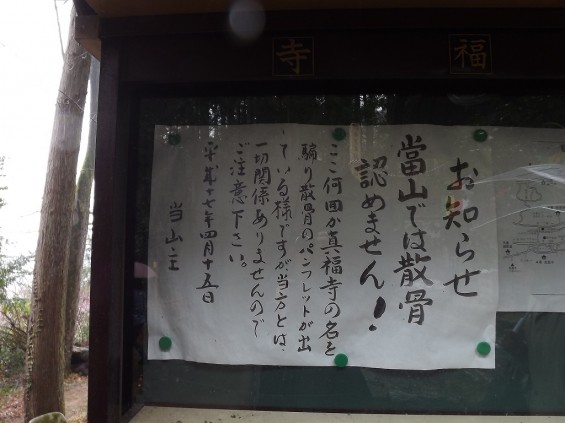 福
寺
お知らせ
當山では散骨
認めません!
ここ何回か真福寺の名を
騙り散骨のパンフレットが出
ている様ですが当方とは、
一切関係ありませんので
ご注意下さい。
平成十七年四月十五日
当山主